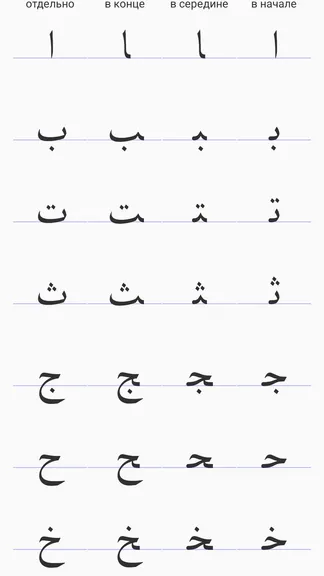 отдельно в конце в середине в начале
ا ـا ـا ا
ب ـب ـبـ بـ
ت ـت ـتـ تـ
ث ـث ـثـ ثـ
ج ـج ـجـ جـ
ح ـح ـحـ حـ
خ ـخ ـخـ خـ